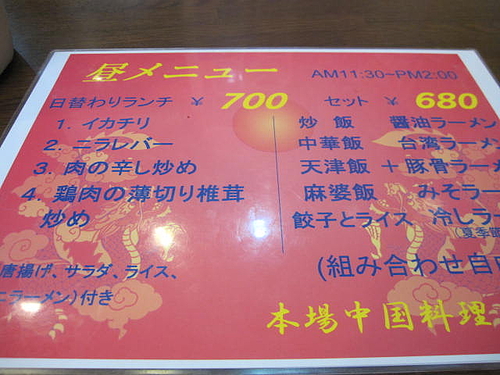 昼メニュー AM11:30~PM2:00
日替わりランチ ¥ 700
1. イカチリ
2. ニラレバー
3. 肉の辛し炒め
4. 鶏肉の薄切り椎茸
炒め
唐揚げ、サラダ、ライス、
ニラーメン)付き
セット ¥ 680
炒飯 醤油ラーメン
中華飯 台湾ラーメ
天津飯 + 豚骨ラー
麻婆飯 みそラー
餃子とライス 冷しラ
(夏季
(組み合わせ自由
本場中国料理